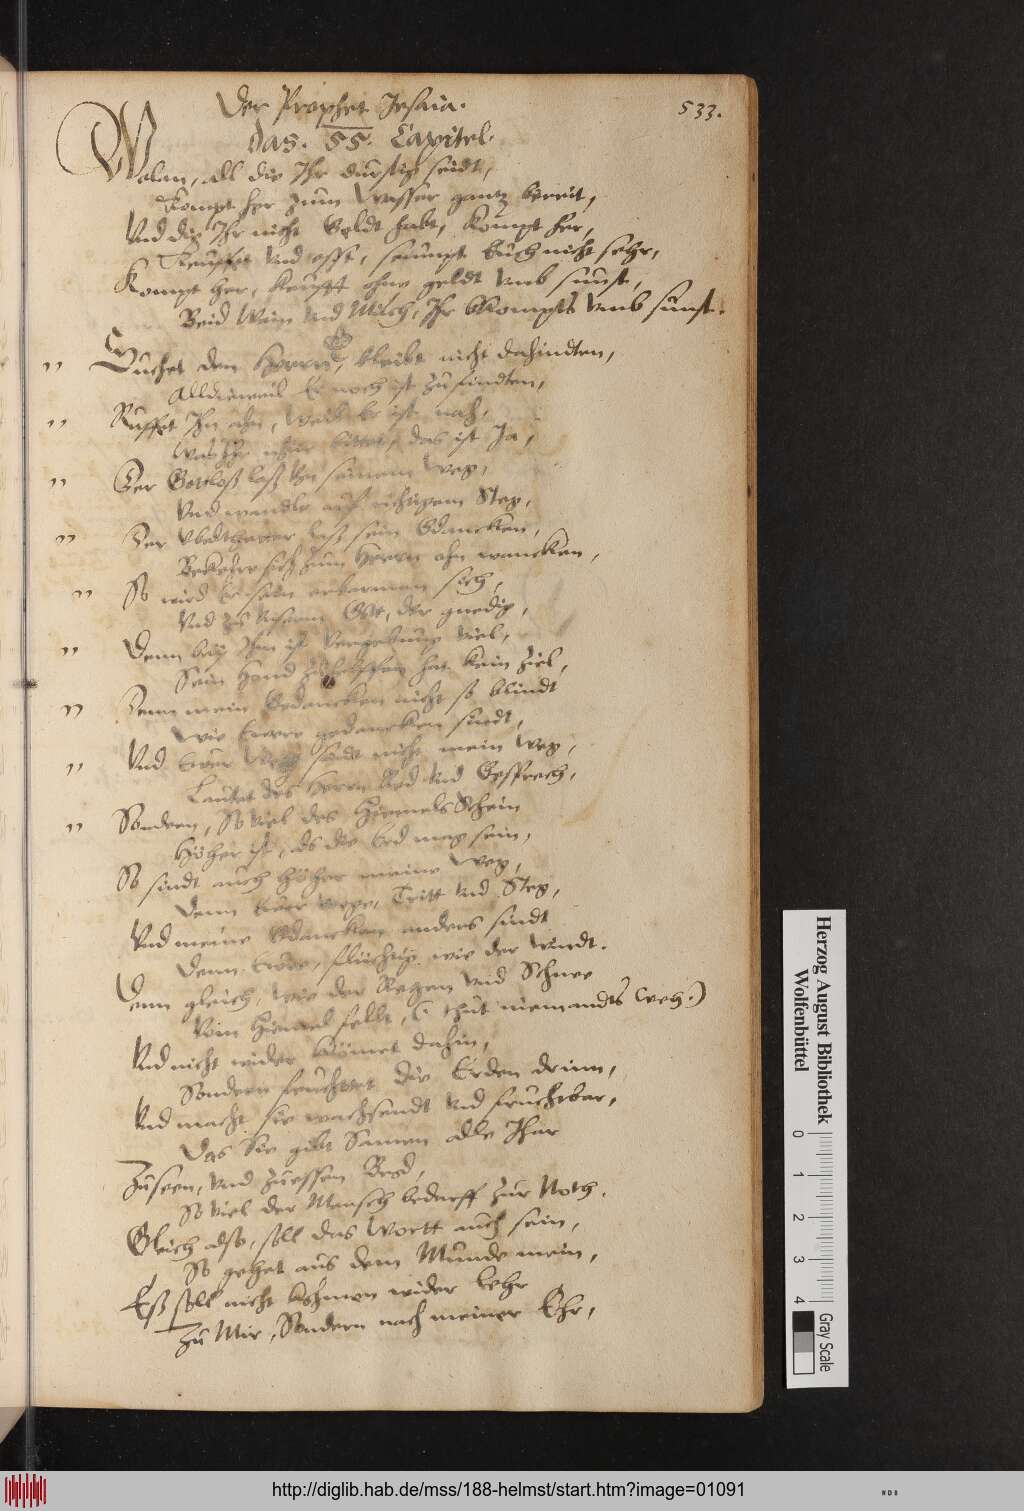 Der Prophet Jesaia.
533.
Das. 55. Capitel.
Wolan, all die Ihr durstig seidt,
Kompt her zum Wasser gantz bereit,
Vnd die Ihr nicht Geldt habt, kompt her,
Keuffet vnd esst, seumpt Euch nicht sehr,
Kompt her, keufft ohne geldt vmb sunst,
Beid Wein vnd Milch, Ihr bkompts vmb sunst.
Suchet den Herrn, bleibt nicht dahindten,
Alldieweil Er noch ist zu findten,
Ruffet Ihn ahn, weil Er ist nah,
Was Ihr bittet, das ist Ja,
Der Gottloß laß von seinem Weg,
Vnd wandle auf richtigem Steg,
Der Vbelthaeter laß sein Gdancken,
Bekehre sich zum Herrn ohn wancken,
So wird Er sein erbarmen sich,
Vnd zu vnserm Gott, der gnedig,
Denn bey Ihm ist Vergebung viel,
Sein Hand zu helffen hat kein Ziel,
Denn mein Gedancken nicht so blindt
Wie Ewere gedancken sindt,
Vnd Ewer Weg sindt nicht mein Weg,
Lautet des Herrn Red vnd Gesprech,
Sondern, So viel des Himmels Schein
Höher ist, als die Erd mag sein,
So sindt auch höher meine Weg,
Denn Ewer wege, Tritt vnd Steg,
Vnd meine Gdancken anders sindt
Denn Ewre, flüchtig wie der Windt.
Denn gleich, wie der Regen vnd Schnee
Vom Himmel fellt, (thut niemandts weh.)
Vnd nicht wider kömmet dahin,
Sondern feuchtet die Erden drinn,
Vnd macht sie wachsendt vnd fruchtbar,
Das Sie gibt Samen alle Jhar
Zuseen, vnd zuessen Brod,
So viel der Mensch bedarff zur Noth.
Gleich also, soll das Wortt auch sein,
So gehet aus dem Munde mein,
Eß soll nicht kommen wider lehr
Zu Mir, Sondern nach meiner Ehr,
Herzog August Bibliothek
Wolfenbüttel
0 1 2 3 4
Gray Scale
http://diglib.hab.de/mss/188-helmst/start.htm?image=01091